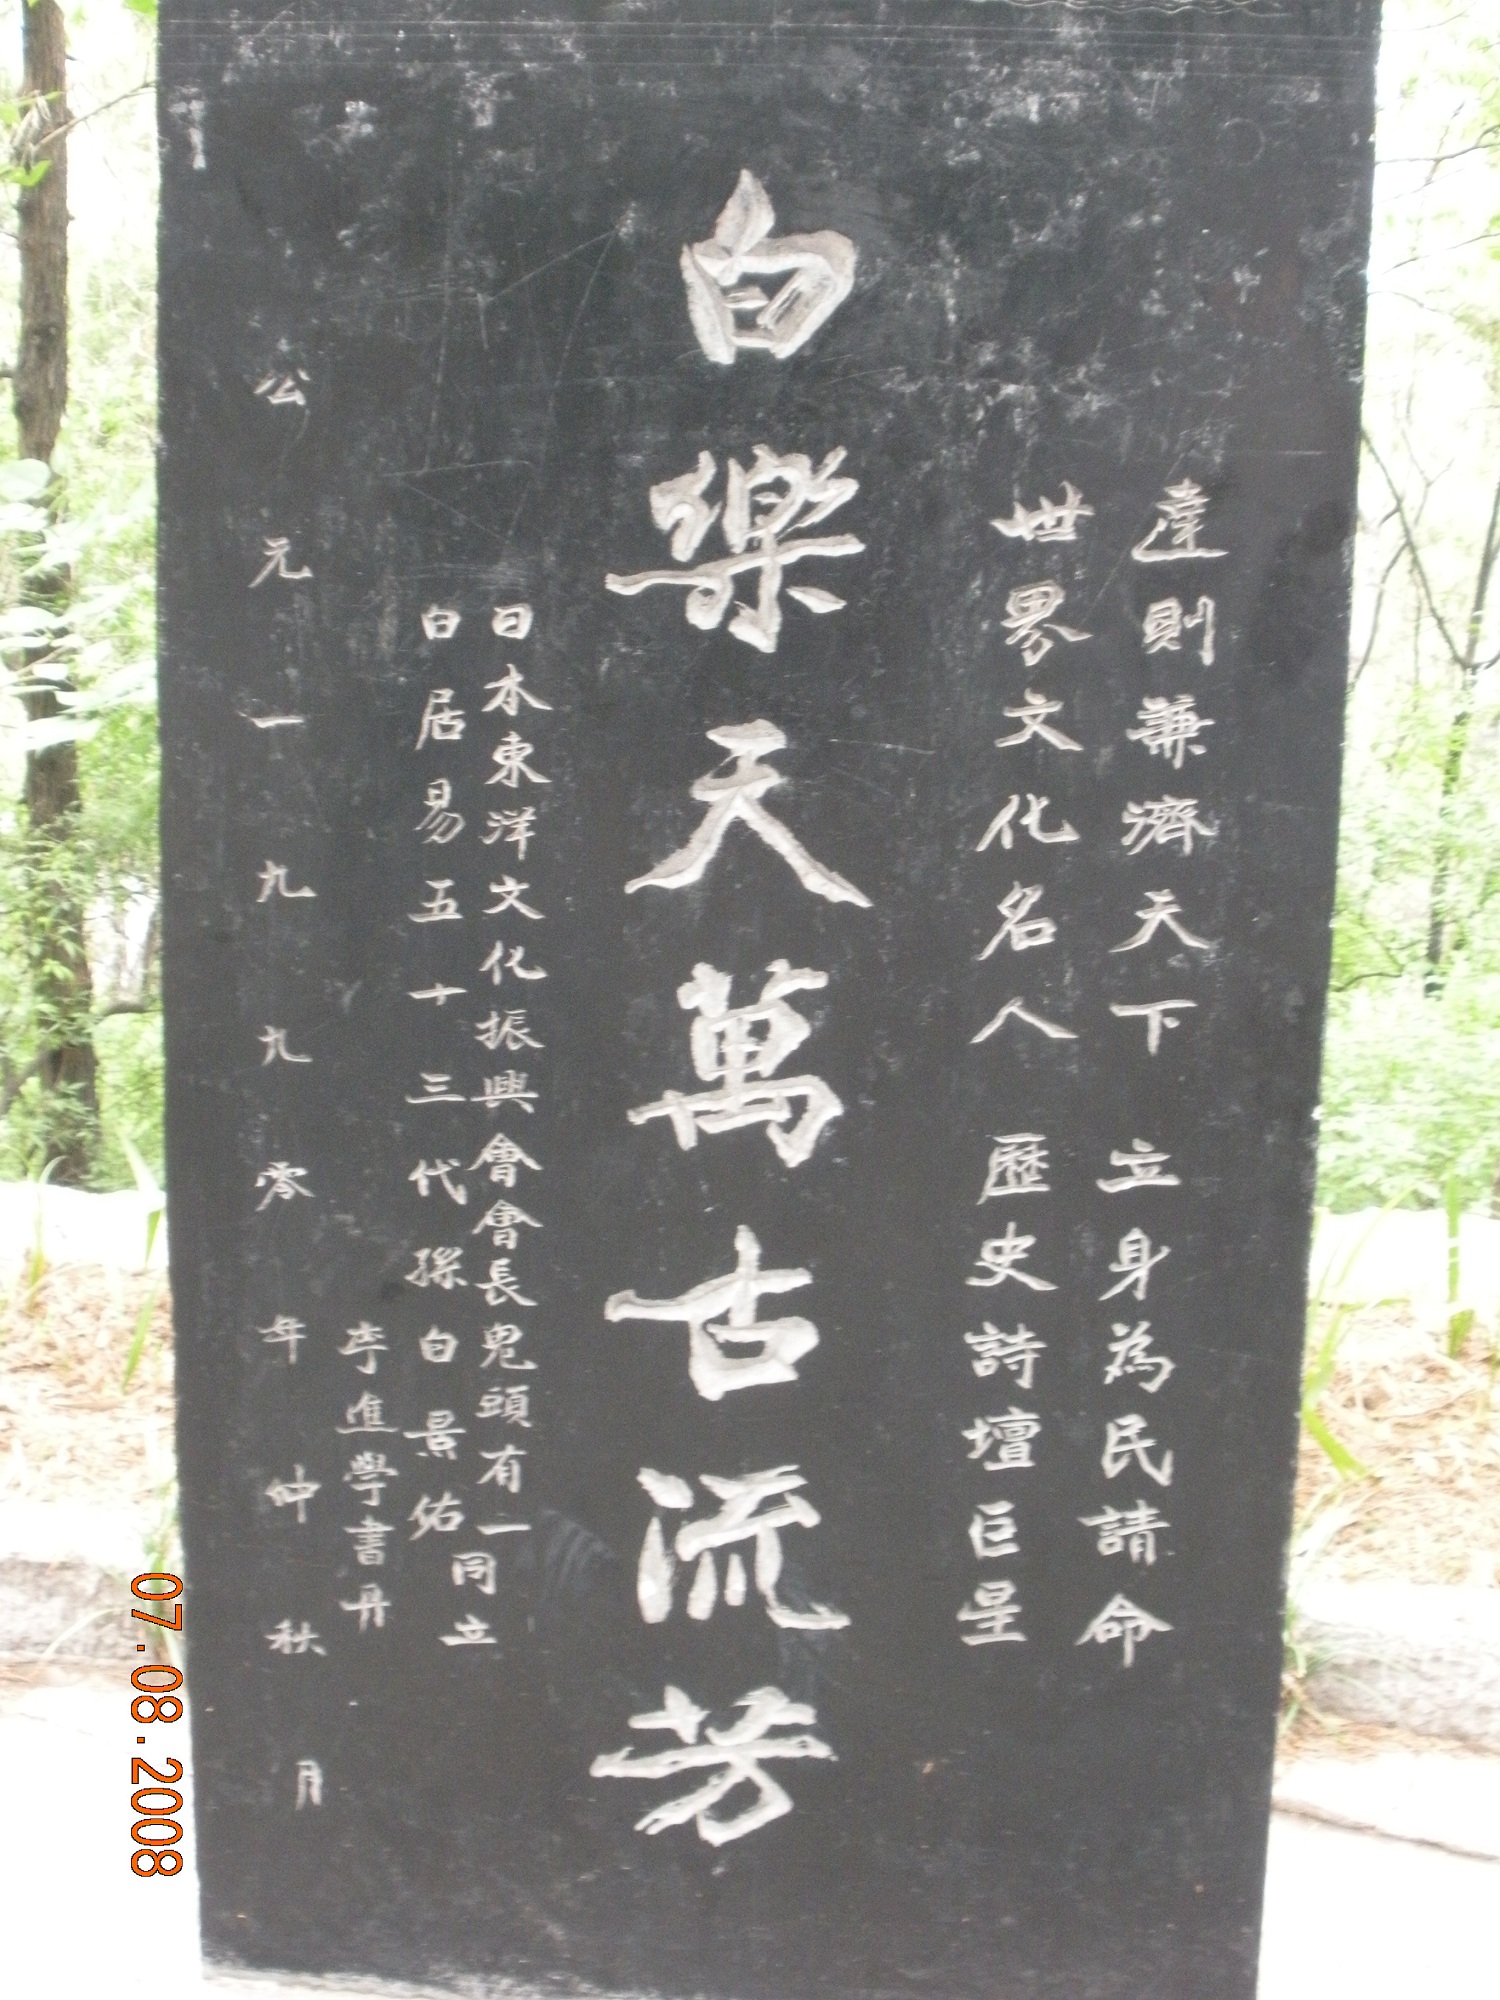 達則兼濟天下 立身為民請命
世界文化名人 歷史詩壇巨星
白樂天萬古流芳
日本東洋文化振興會會長鬼頭有一
白居易五十三代孫白景佑
同立
李進學書丹
公元一九九零年仲秋月
07.08.2008